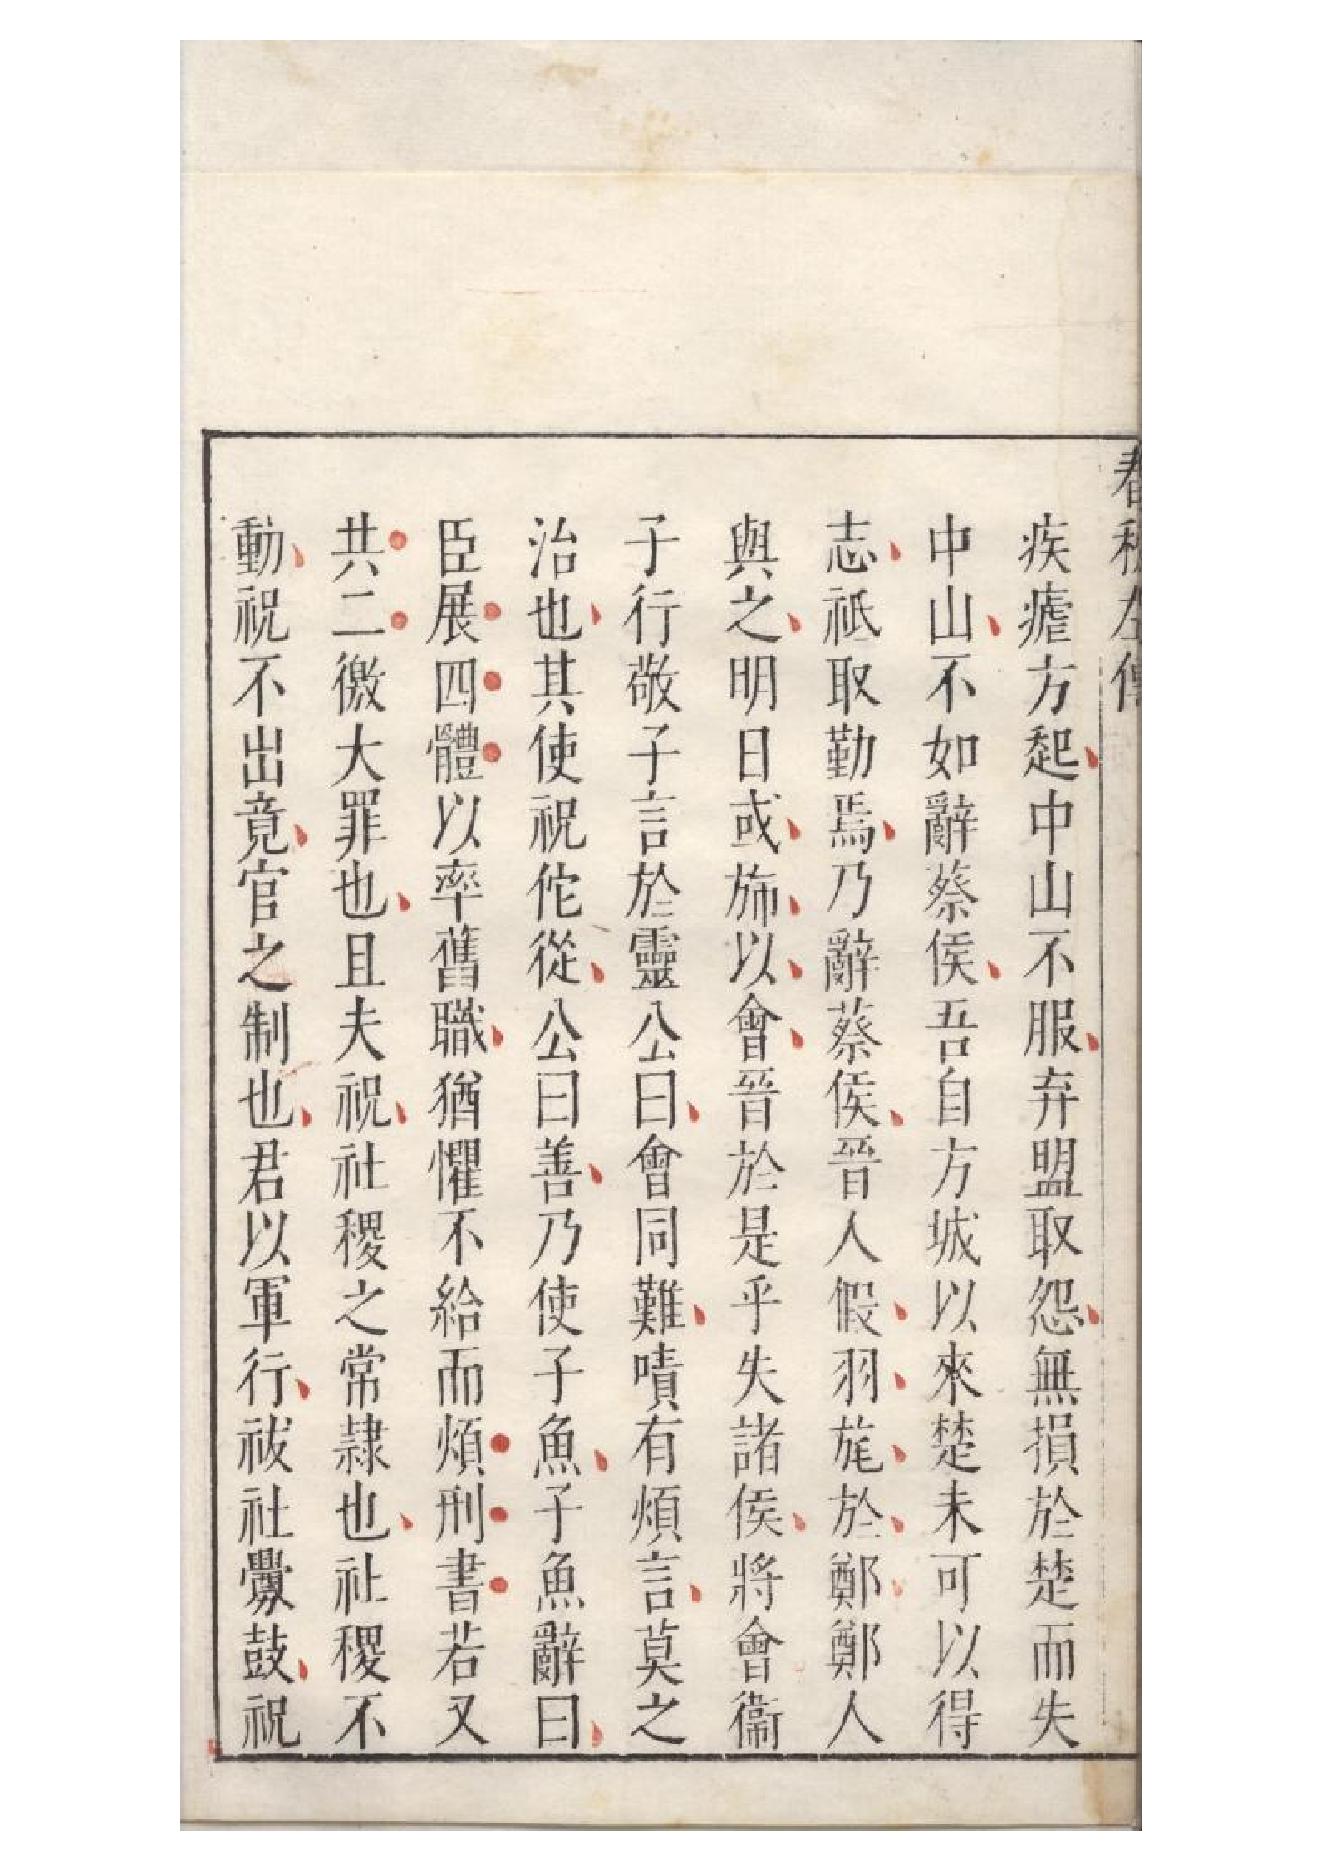 春秋左傳
疾瘧方起中山不服弃盟取怨無損於楚而失
中山不如辭蔡侯吾自方城以來楚未可以得
志祗取勤焉乃辭蔡侯晉人假羽旄於鄭鄭人
與之明日或斾以會晉於是乎失諸侯將會衞
子行敬子言於靈公曰會同難嘖有煩言莫之
治也其使祝佗從公曰善乃使子魚子魚辭曰
臣展四體以率舊職猶懼不給而煩刑書若又
共二徼大罪也且夫祝社稷之常隷也社稷不
動祝不出竟官之制也君以軍行祓社釁鼓祝